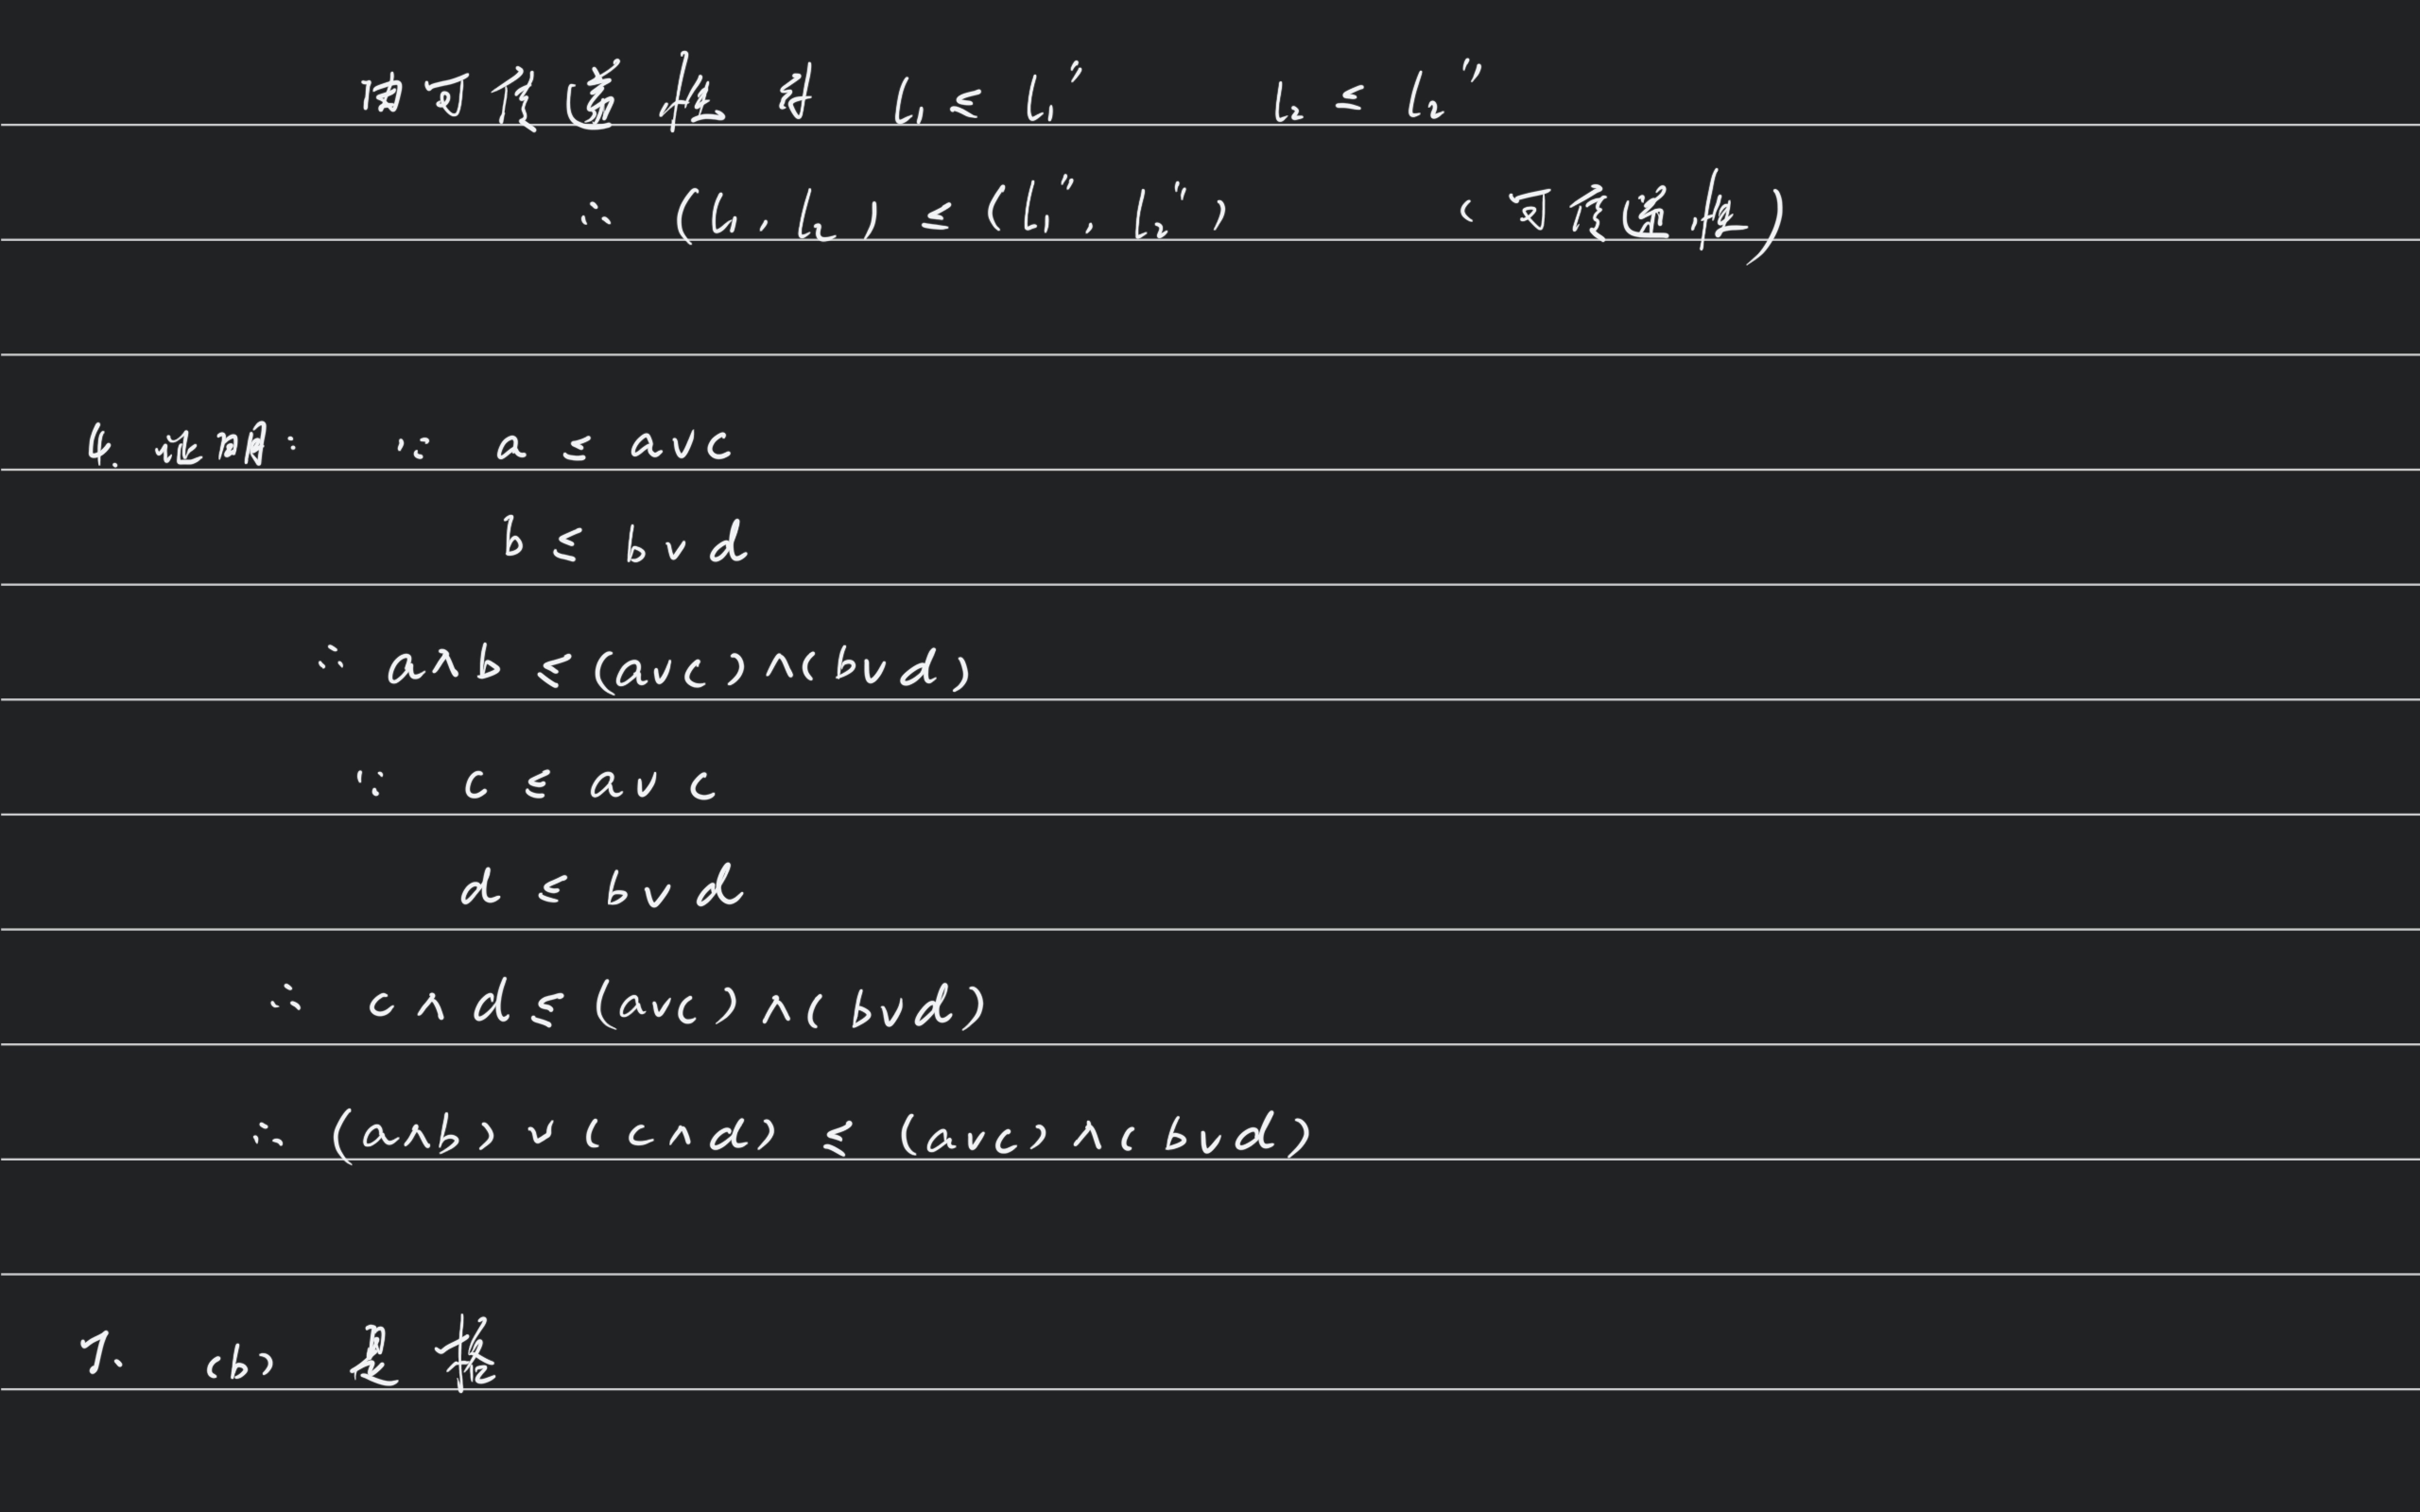 由可传递性 得 l₁ ≤ l₁" l₂ ≤ l₂"
∴ (l₁, l₂) ≤ (l₁", l₂") (可传递性)
4. 证明: ∵ a ≤ a∨c
b ≤ b∨d
∴ a∧b ≤ (a∨c)∧(b∨d)
∵ c ≤ a∨c
d ≤ b∨d
∴ c∧d ≤ (a∨c)∧(b∨d)
∴ (a∧b)∨(c∧d) ≤ (a∨c)∧(b∨d)
7. (b) 是格